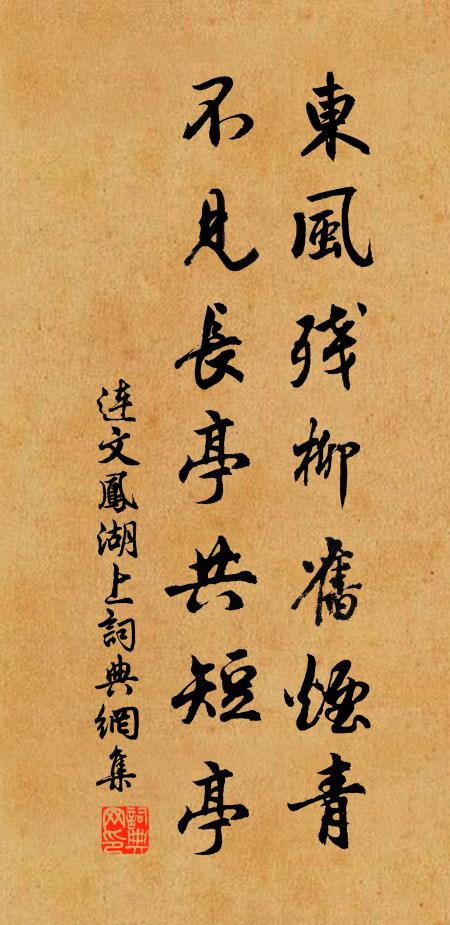 東風殘柳舊煙青
不見長亭共短亭
連文鳳湖上詞典網集
詞典网印